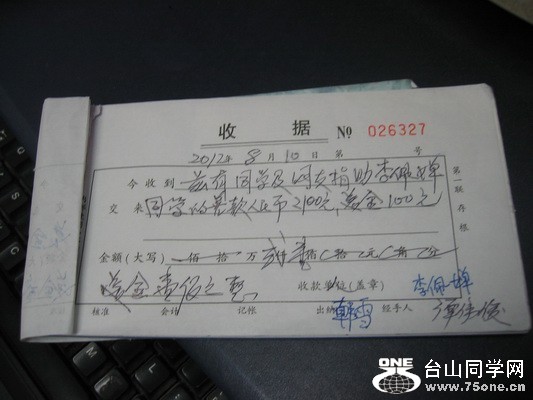 收 据 № 026327
2012年 8月 10日 第 号
今收到 兹有同学及网友捐助李佩婵
交来 同学的善款人民币2100元,美金100元
金额(大写) 佰 拾 万 贰仟壹佰 拾 元 角 分
美金壹佰
收款单位(盖章) 李佩婵
核准 会计 记帐 出纳 韩雪 经手人
第一联存根
ONE
台山同学网
www.75one.cn